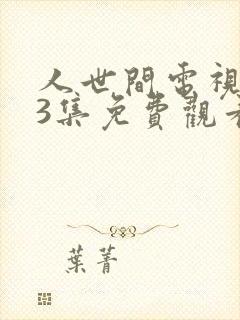 人世間電視
3集免費觀看
葉菁